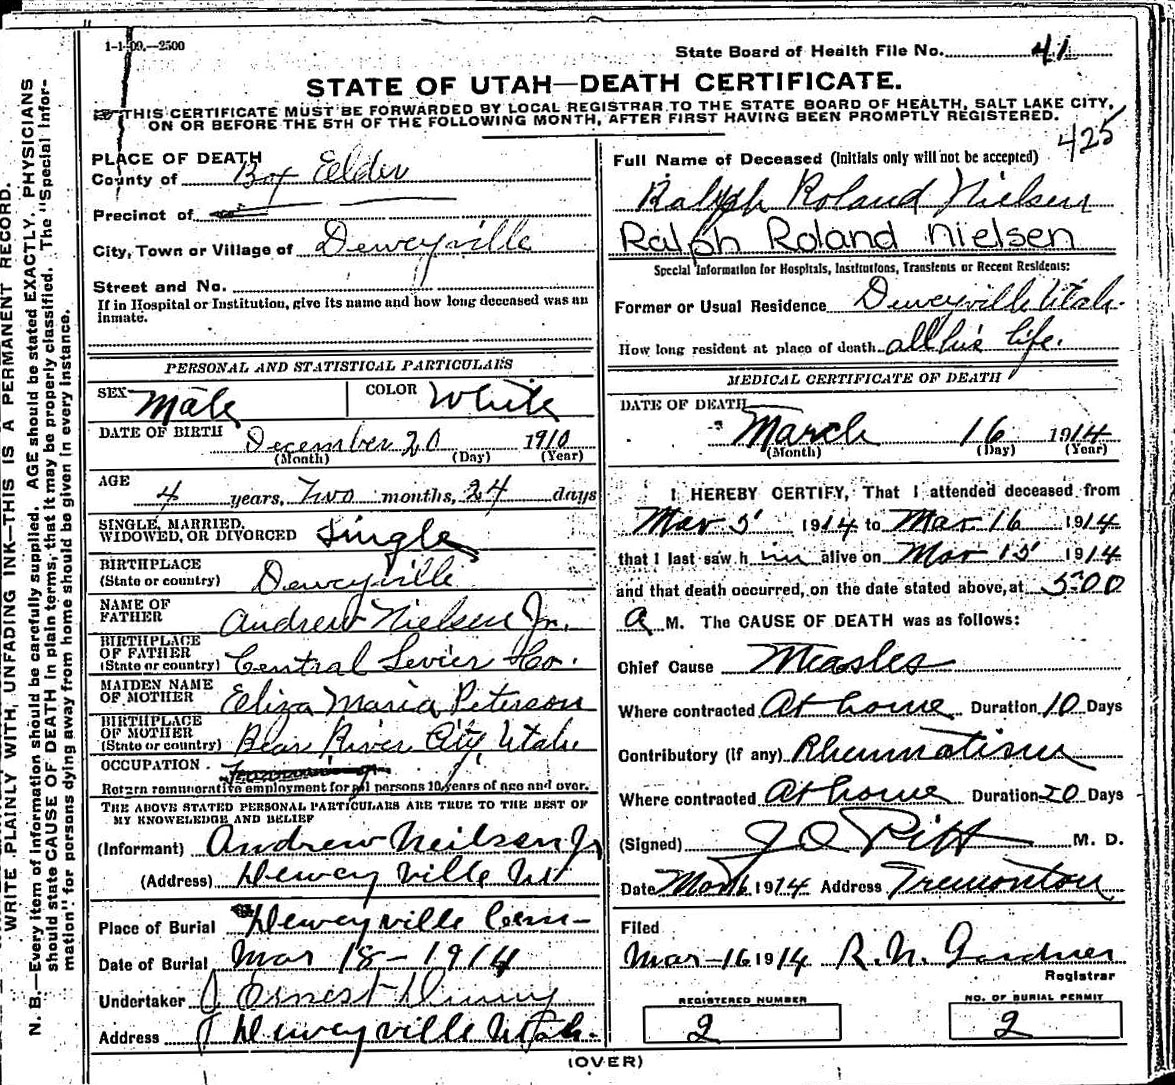 1-1-09.—2500
State Board of Health File No. 41
STATE OF UTAH—DEATH CERTIFICATE.
THIS CERTIFICATE MUST BE FORWARDED BY LOCAL REGISTRAR TO THE STATE BOARD OF HEALTH, SALT LAKE CITY,
ON OR BEFORE THE 5TH OF THE FOLLOWING MONTH, AFTER FIRST HAVING BEEN PROMPTLY REGISTERED.
425
WRITE PLAINLY WITH UNFADING INK—THIS IS A PERMANENT RECORD.
N. B.—Every item of information should be carefully supplied. AGE should be stated EXACTLY. PHYSICIANS
should state CAUSE OF DEATH in plain terms, that it may be properly classified. The "Special Infor-
mation" for persons dying away from home should be given in every instance.
PLACE OF DEATH
County of Box Elder
Precinct of
City, Town or Village of Deweyville
Street and No.
If in Hospital or Institution, give its name and how long deceased was an
inmate.
PERSONAL AND STATISTICAL PARTICULARS
SEX Male COLOR White
DATE OF BIRTH December 20 1910
(Month) (Day) (Year)
AGE 4 years, Two months, 24 days
SINGLE, MARRIED,
WIDOWED, OR DIVORCED Single
BIRTHPLACE
(State or country) Deweyville
NAME OF
FATHER Andrew Nielsen Jr.
BIRTHPLACE
OF FATHER
(State or country) Central Sevier Co.
MAIDEN NAME
OF MOTHER Eliza Maria Peterson
BIRTHPLACE
OF MOTHER
(State or country) Bear River City Utah
OCCUPATION
Return remunerative employment for all persons 10 years of age and over.
THE ABOVE STATED PERSONAL PARTICULARS ARE TRUE TO THE BEST OF
MY KNOWLEDGE AND BELIEF
(Informant) Andrew Neilsen Jr
(Address) Deweyville Ut
Place of Burial Deweyville Cem-
Date of Burial Mar 18-1914
Undertaker J Ernest
Address Deweyville Utah.
Full Name of Deceased (Initials only will not be accepted)
Ralph Roland Nielsen
Ralph Roland Nielsen
Special Information for Hospitals, Institutions, Transients or Recent Residents:
Former or Usual Residence Deweyville Utah.
How long resident at place of death all his life.
MEDICAL CERTIFICATE OF DEATH
DATE OF DEATH
March 16 1914
(Month) (Day) (Year)
I HEREBY CERTIFY, That I attended deceased from
Mar 5 1914 to Mar. 16 1914
that I last saw him alive on Mar 15 1914
and that death occurred, on the date stated above, at 5:00
A M. The CAUSE OF DEATH was as follows:
Chief Cause Measles
Where contracted At home Duration 10 Days
Contributory (if any) Rheumatism
Where contracted At home Duration 20 Days
(Signed) J O Pitt M. D.
Date Mar 16 1914 Address Tremonton
Filed
Mar-16 1914 R. N. Gardner
Registrar
REGISTERED NUMBER
2
NO. OF BURIAL PERMIT
2
(OVER)